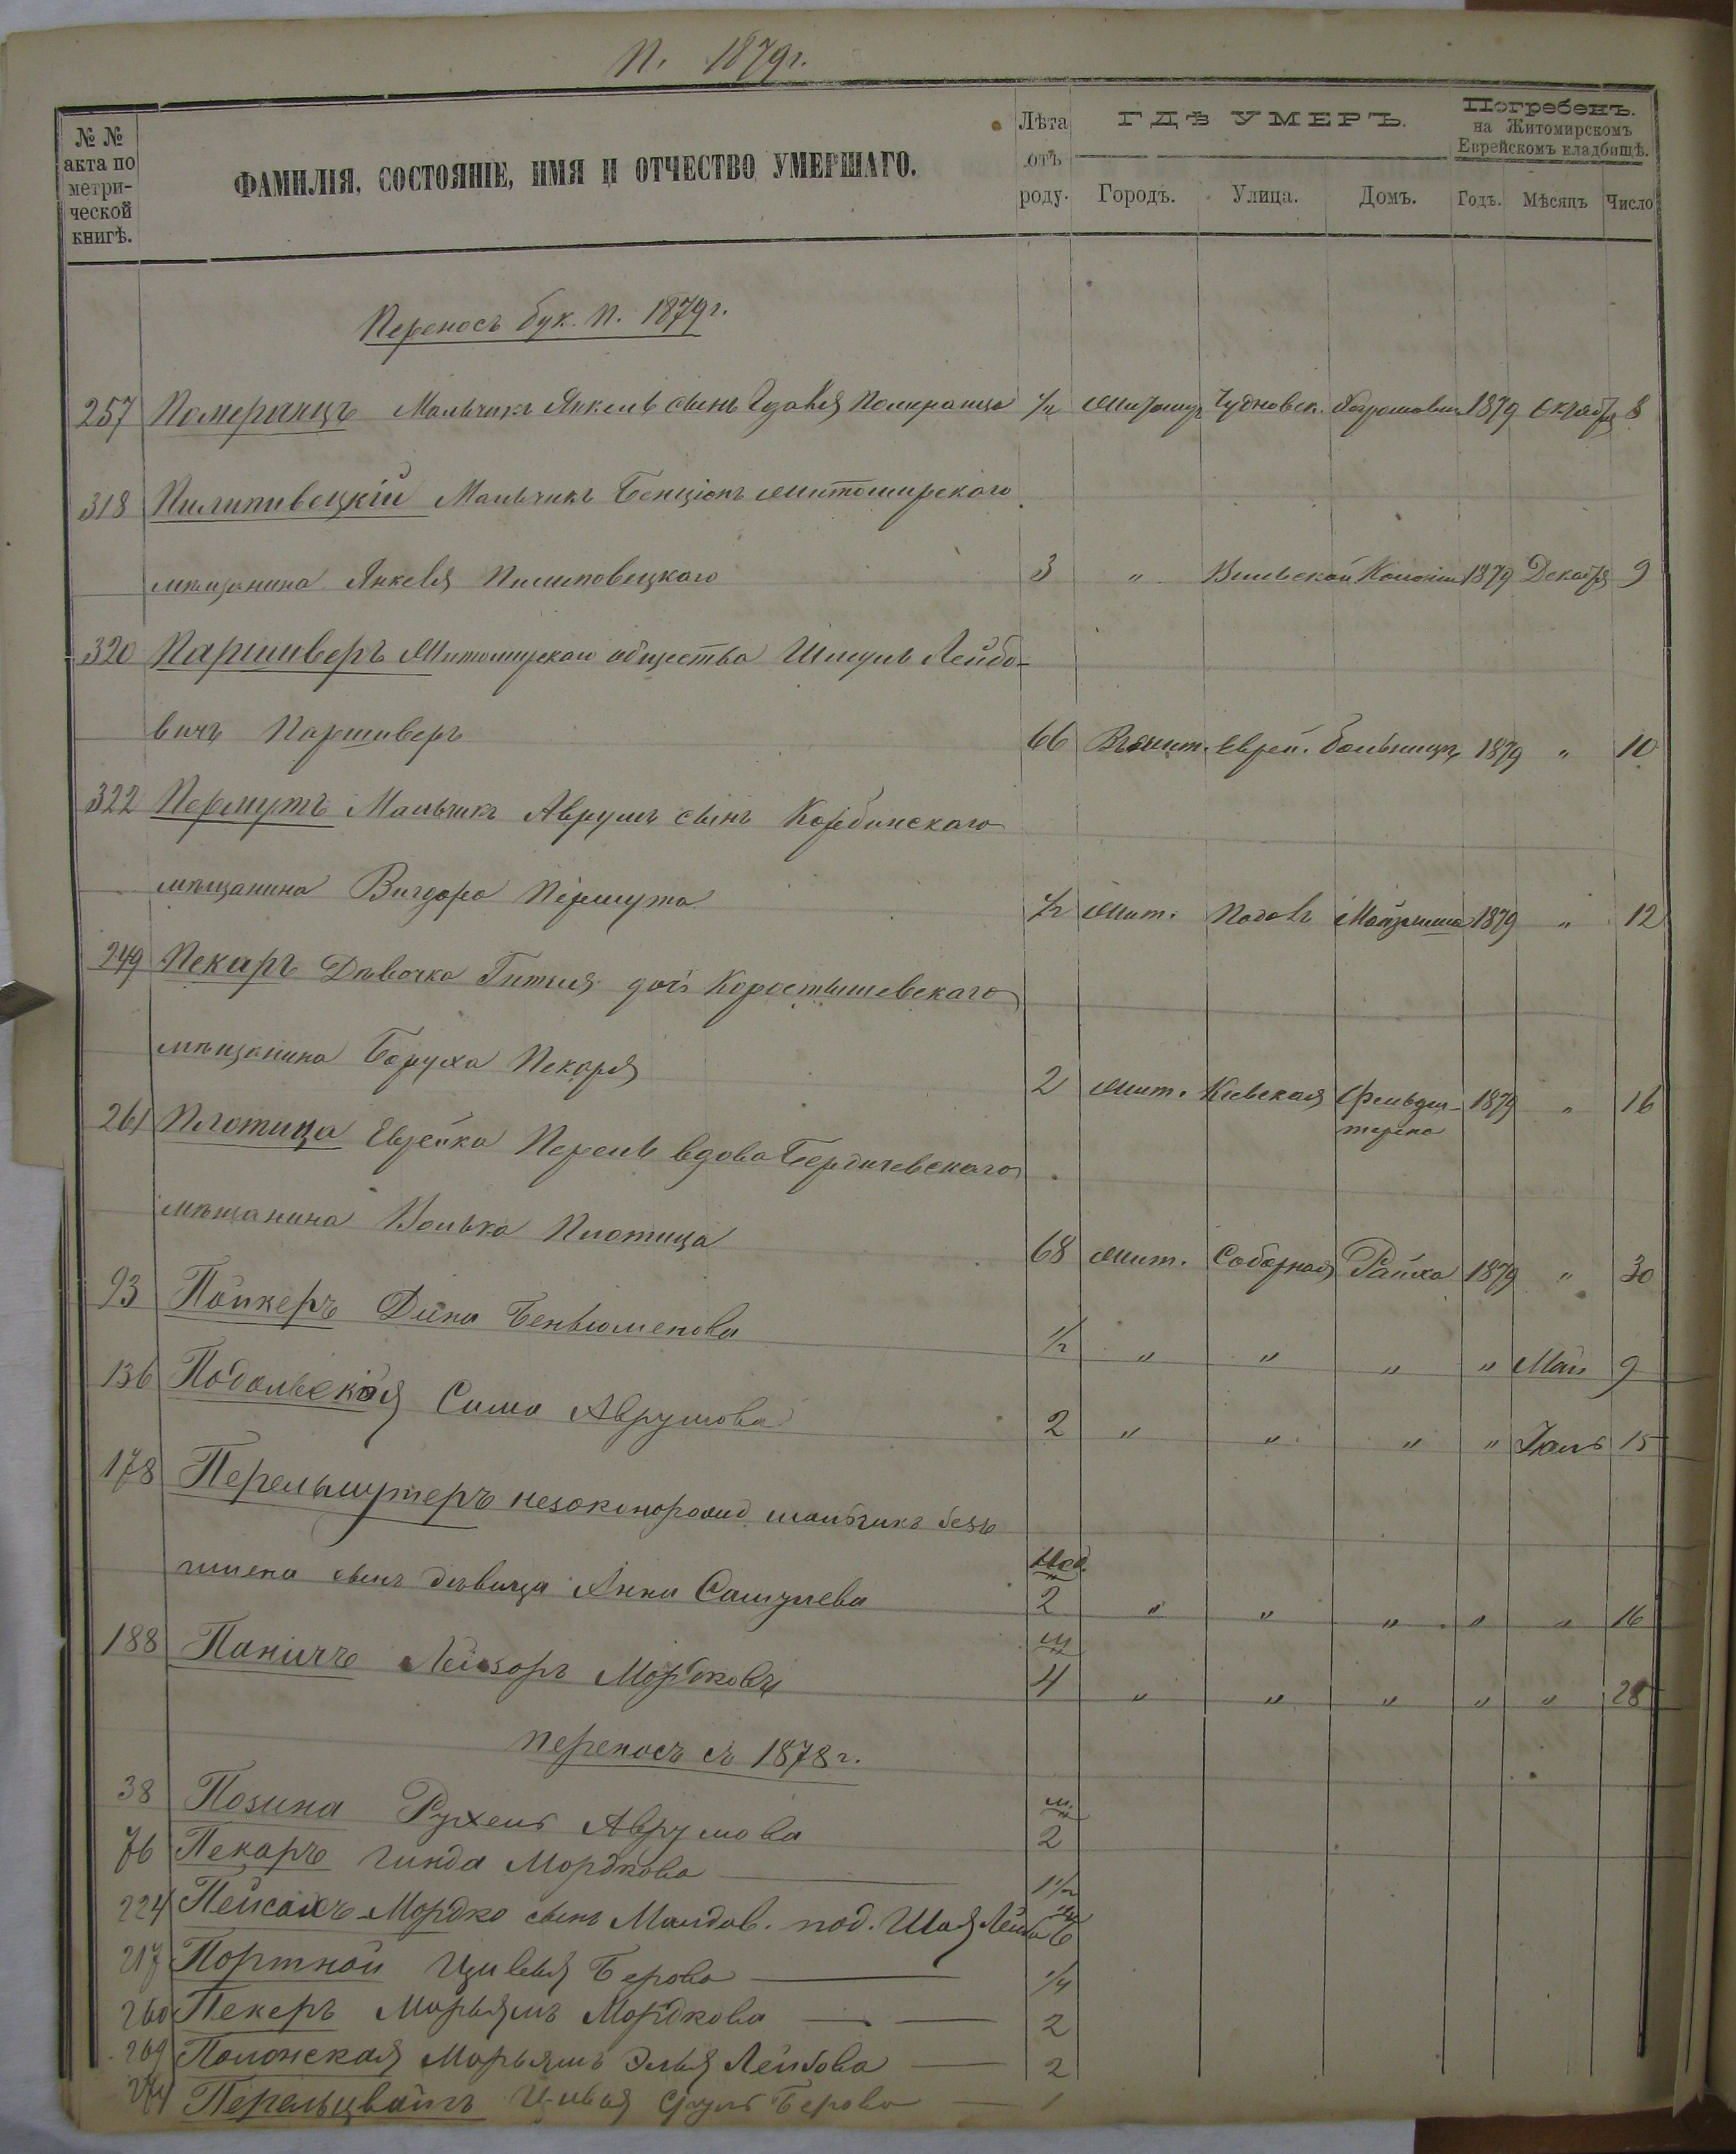 П. 1879г.
№ № акта по метри-ческой книгѣ.
ФАМИЛІЯ, СОСТОЯНІЕ, ИМЯ И ОТЧЕСТВО УМЕРШАГО.
Лѣта отъ роду.
ГДѢ УМЕРЪ.
Погребенъ.
на Житомирскомъ
Еврейскомъ кладбищѣ.
Городъ. Улица. Домъ. Годъ. Мѣсяцъ Число
Переносъ бук. П. 1879г.
257 Померанцъ Мальчикъ Янкель сынъ Померанца 1/2 Житомиръ Чудновск. 1879 Октября 8
318 Пилипивецкій Мальчикъ Бенціонъ Житомирскаго
мѣщанина Янкеля Пилиповецкаго 3 " Вильской Колоніи 1879 Декабря 9
320 Паршиверъ Житомирскаго общества Шмуль Лейбо-
вичъ Паршиверъ 66 Въ Жит. Еврей. больницѣ 1879 " 10
322 Пермутъ Мальчикъ Аврумъ сынъ
мѣщанина Вигдора Пермута 1/2 Жит. 1879 " 12
249 Пекаръ Дѣвочка Гитля дочь Коростышевскаго
мѣщанина Боруха Пекаря 2 Жит. Кіевская Фельдш-
1879 " 16
261 Плотица Еврейка Перель вдова Бердичевскаго
мѣщанина Волька Плотица 68 Жит. Соборная Райха 1879 " 30
93 Пойкеръ Дина Беньюменова 1/2 " " " " Май 9
136 Подольская Сима Аврумова 2 " " " " Іюль 15
178 Перельмутеръ незаконорожд мальчикъ безъ
имена сынъ дѣвица Анна Самуилева Нед. 2 " " " " " 16
188 Паничъ Лейзоръ Мордковъ м 4 " " " " " 28
переносъ съ 1878г.
38 Позина Рухель Аврумова м. 2
76 Пекаръ Гинда Мордкова 1 1/2
224 Пейсахъ Мордко сынъ Молдав. под. Шая Лейба м 6
217 Портной Цивья Берова 1/4
260 Пекеръ Марьямъ Мордкова 2
269 Полонская Марьямъ Элья Лейбова 2
274 Перельцвайгъ Цивья Сруль Берова 1